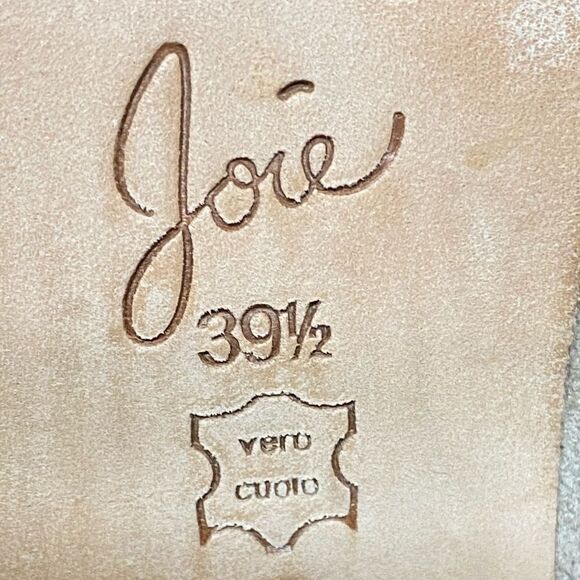 Joie
39½
vero
cuoio